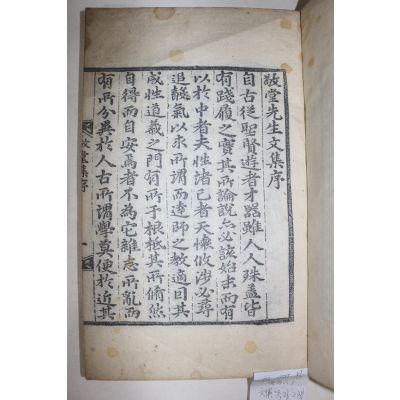 敬堂先生文集序
自古從聖賢遊者才器雖人人殊盖皆
有踐履之實其所論說亦必該始末而有
以於中者夫性諸己者天悚攸涉必尋
追髓氣以求所謂而達師之教適回其
成性道義之門有所于根柢其所脩然
自得而自安焉者不為它雜志所亂而
有所分異於人古所謂學莫便於近其
敬堂集序